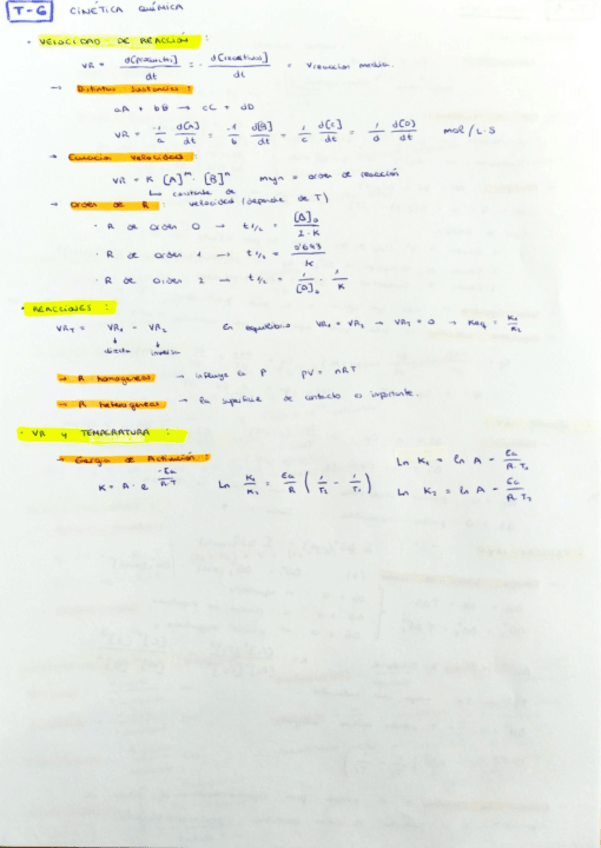 T-6 CINÉTICA QUÍMICA
· VELOCIDAD DE REACCIÓN :
VR = d[productos]/dt = - d[reactivos]/dt = Vreacción media.
→ Distintas Sustancias :
aA + bB → cC + dD
VR = -1/a d[A]/dt = -1/b d[B]/dt = 1/c d[C]/dt = 1/d d[D]/dt mol/L·s
→ Ecuación Velocidad :
VR = K [A]^m · [B]^n m y n = orden de reacción
↳ constante de velocidad (depende de T)
→ Orden de R :
· R de orden 0 → t1/2 = [A]₀/2·K
· R de orden 1 → t1/2 = 0'693/K
· R de orden 2 → t1/2 = 1/[A]₀ · 1/K
· REACCIONES :
VR_T = VR₁ - VR₂ En equilibrio VR₁ = VR₂ → VR_T = 0 → Keq = K₁/K₂
↓ directa ↓ inversa
→ R homogéneas → influye la P PV = nRT
→ R heterogéneas → la superficie de contacto es importante.
· VR y TEMPERATURA :
→ Energía de Activación :
K = A · e^(-Ea/R·T) Ln K₁/K₂ = Ea/R (1/T₂ - 1/T₁)
Ln K₁ = ln A - Ea/R·T₁
Ln K₂ = ln A - Ea/R·T₂